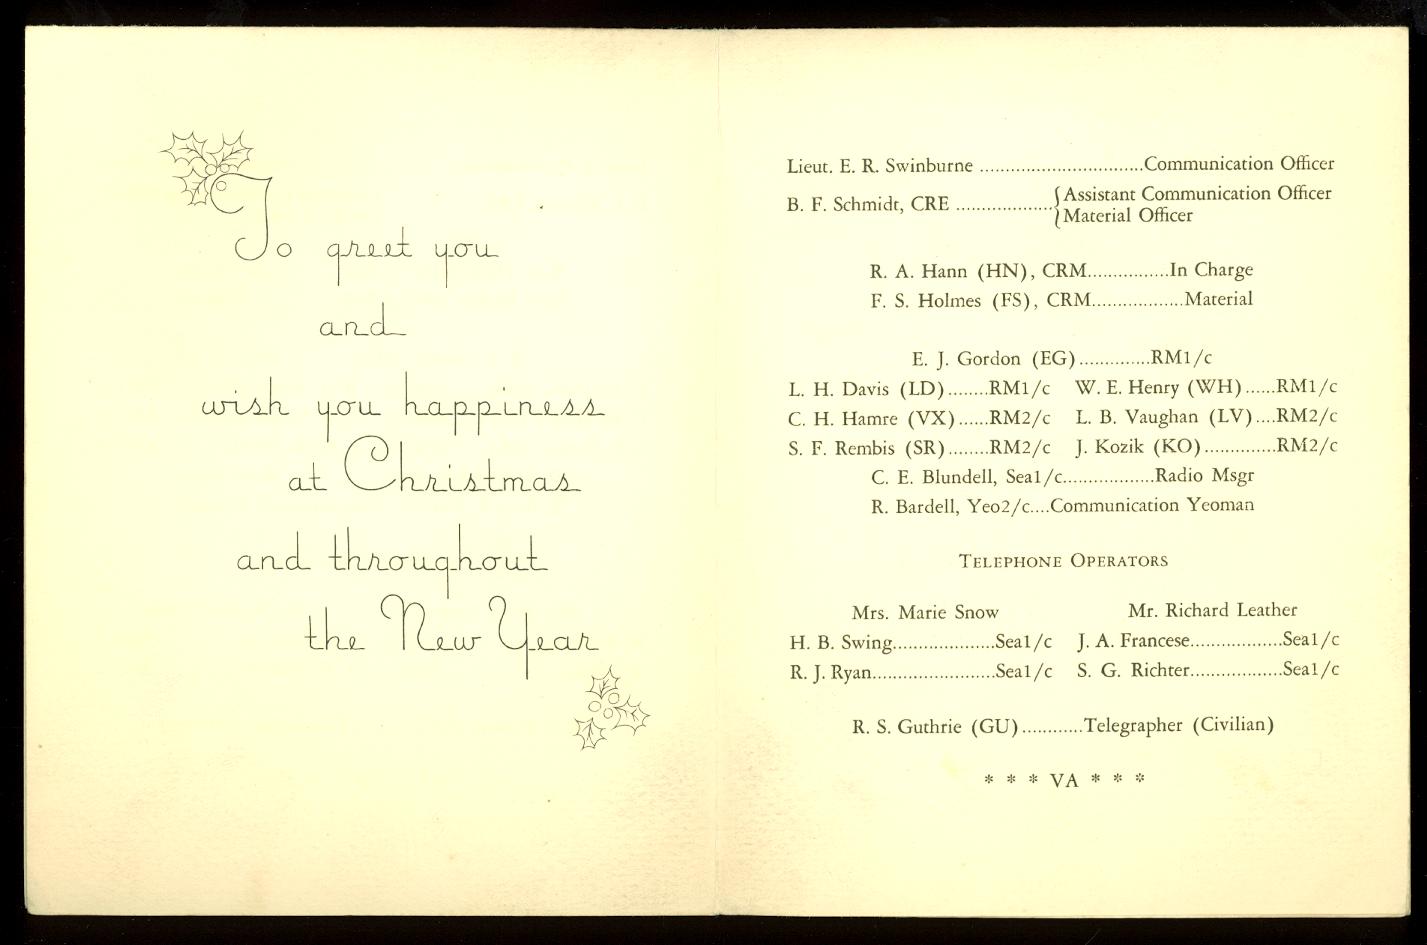 To greet you
and
wish you happiness
at Christmas
and throughout
the New Year
Lieut. E. R. Swinburne ................................Communication Officer
B. F. Schmidt, CRE ...................{Assistant Communication Officer
{Material Officer
R. A. Hann (HN), CRM................In Charge
F. S. Holmes (FS), CRM..................Material
E. J. Gordon (EG)..............RM1/c
L. H. Davis (LD)........RM1/c W. E. Henry (WH)......RM1/c
C. H. Hamre (VX)......RM2/c L. B. Vaughan (LV)....RM2/c
S. F. Rembis (SR)........RM2/c J. Kozik (KO)..............RM2/c
C. E. Blundell, Sea1/c..................Radio Msgr
R. Bardell, Yeo2/c....Communication Yeoman
TELEPHONE OPERATORS
Mrs. Marie Snow Mr. Richard Leather
H. B. Swing....................Sea1/c J. A. Francese..................Sea1/c
R. J. Ryan........................Sea1/c S. G. Richter..................Sea1/c
R. S. Guthrie (GU)............Telegrapher (Civilian)
* * * VA * * *